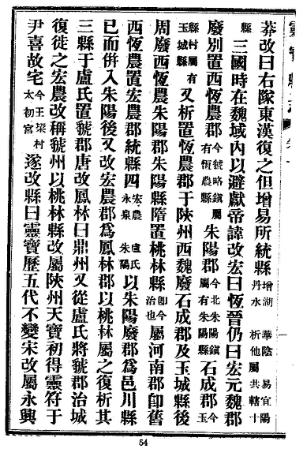 莽改曰右隊東漢復之但增易所統縣增湖 華陰 易宜陽 丹水 析他屬共轄十
縣三國時在魏域內以避獻帝諱改宏曰恆晉仍曰宏元魏郡
廢別置西恆農郡今虢略鎮屬有恆農縣朱陽郡今北朱陽鎮屬有朱陽縣石成郡今玉
縣村屬有玉城縣又析置恆農郡于陝州西魏廢石成郡及玉城縣後
周廢西恆農朱陽郡朱陽縣隋置桃林縣即今治也屬河南郡卽舊
西恆農置恆農郡統縣四宏農 盧氏 永泉 朱陽以朱陽廢郡爲邑川縣
已而併入朱陽後又改宏農郡爲鳳林郡以桃林屬之復析其
三縣于盧氏置虢郡唐改鳳林曰鼎州又從盧氏將虢郡治城
復徙之宏農改稱虢州以桃林縣改屬陝州天寶初得靈符于
尹喜故宅今王垛村太初宮遂改縣曰靈寶歷五代不變宋改屬永興
54